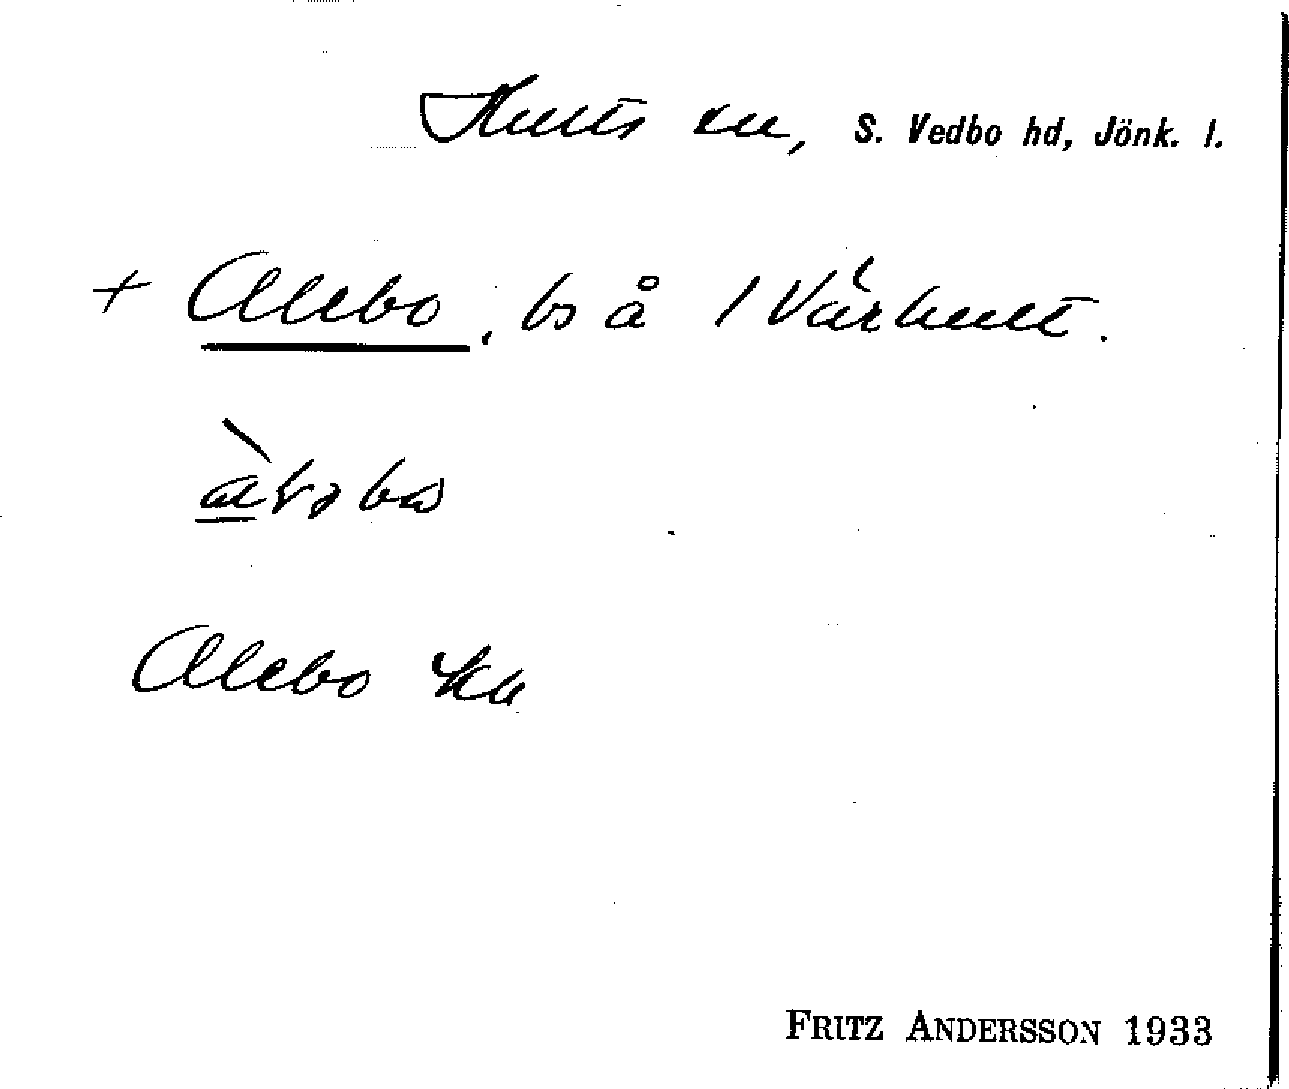 Hults sn, S. Vedbo hd, Jönk. l.
+ Alebo, bs å 1 Vårhult.
Alebo
FRITZ ANDERSSON 1933